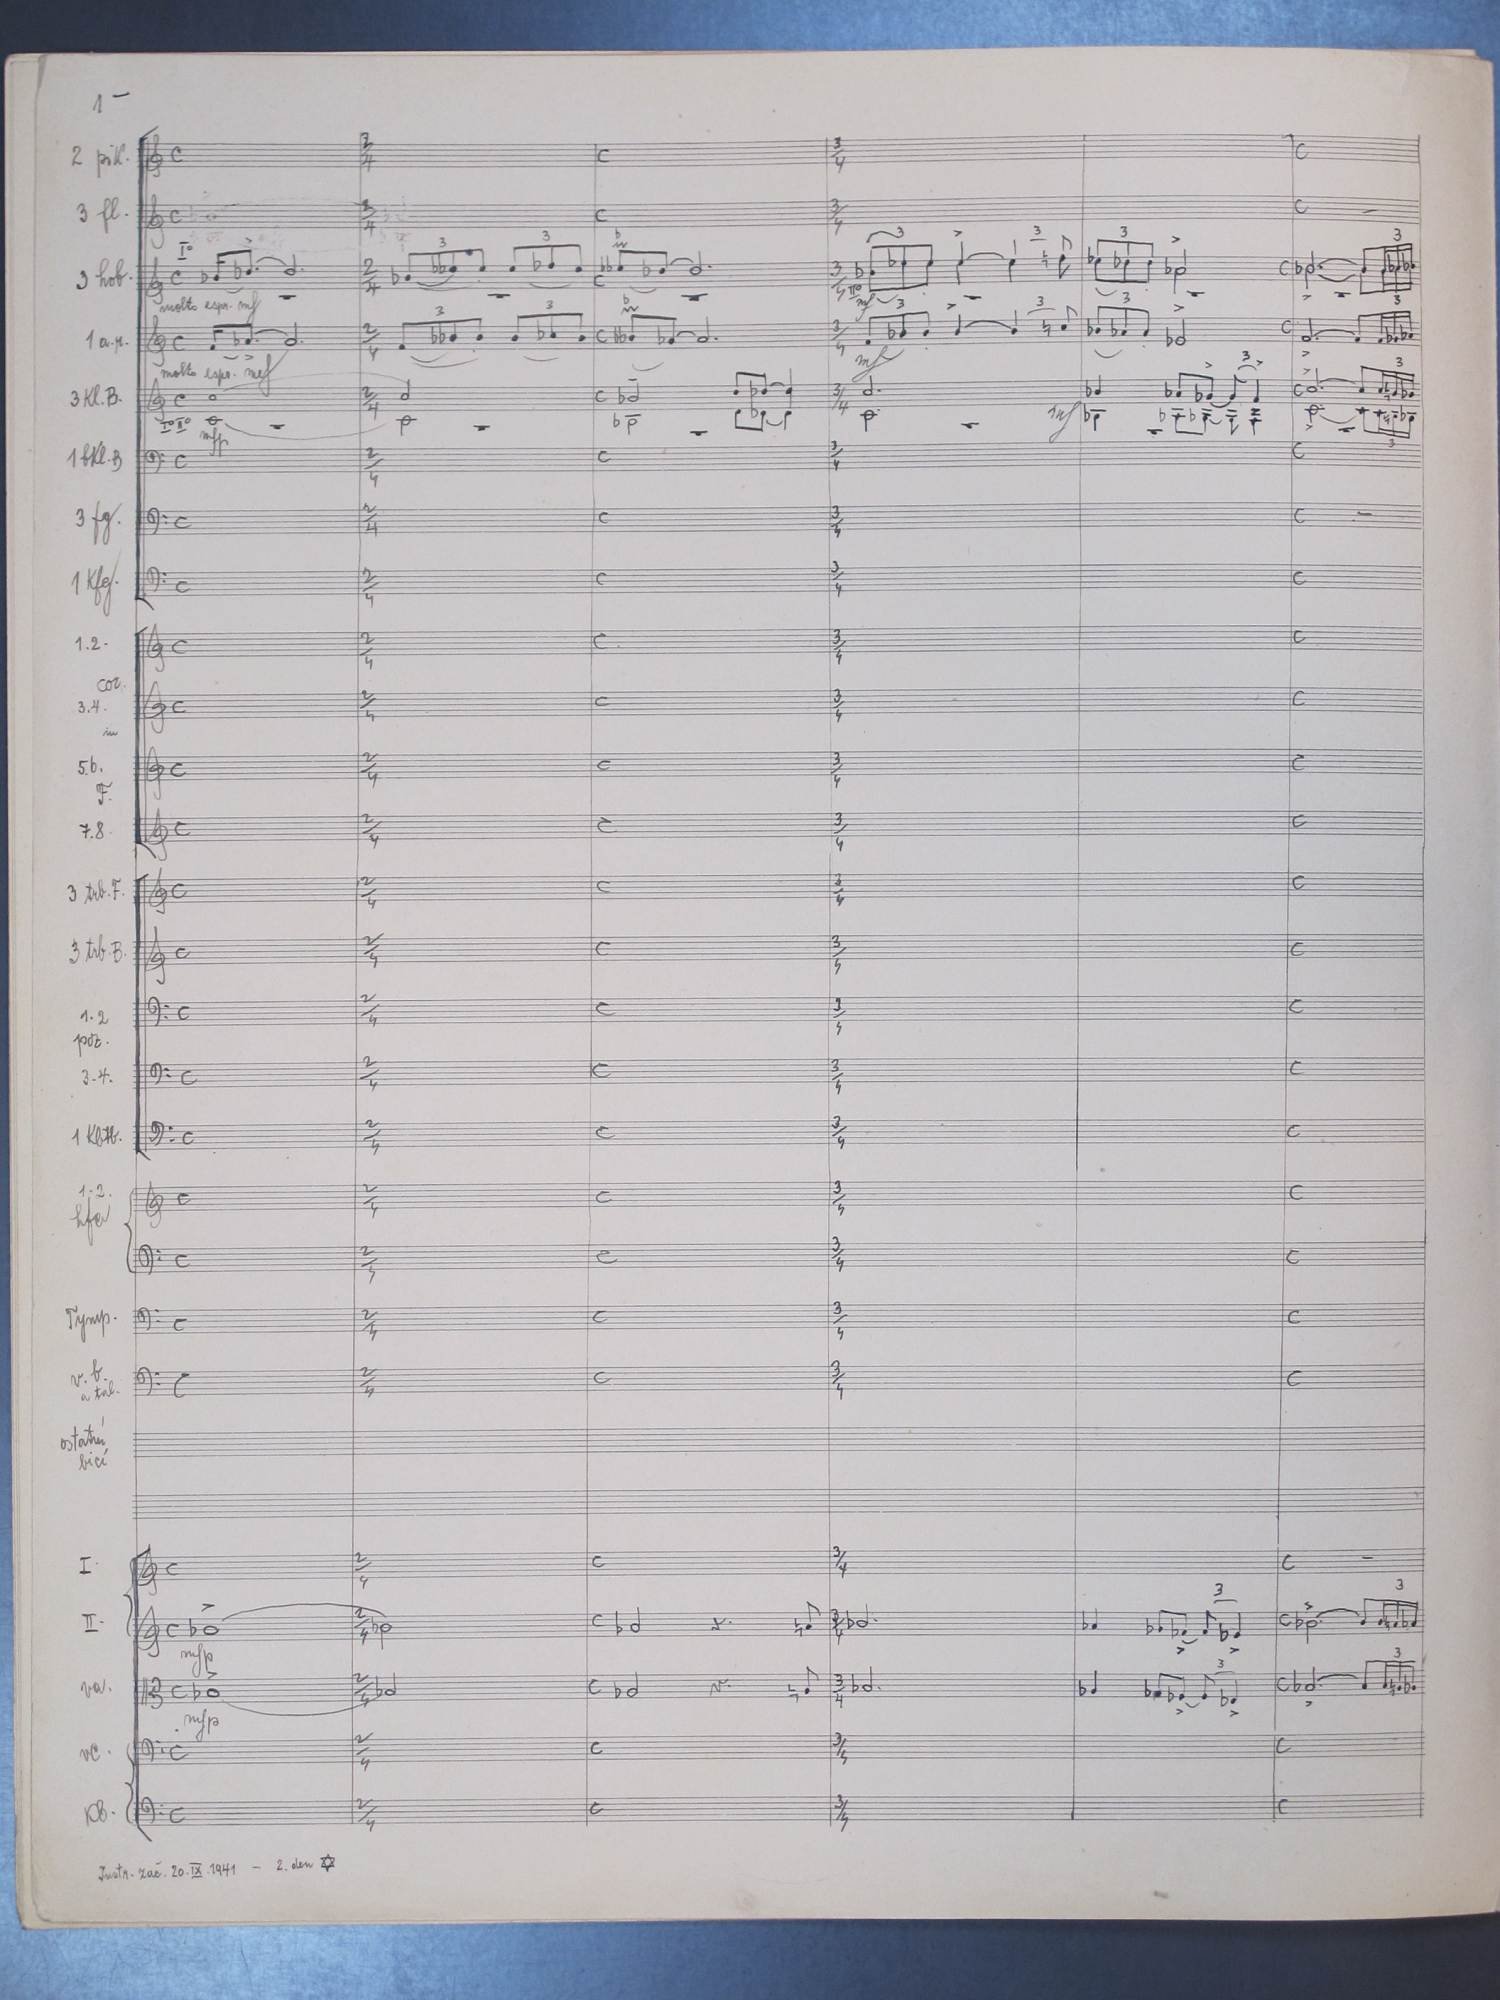 1 –
2 pikl.
3 fl.
Iº
3 hob.
molto espr. mf
IIº
mf
1 a.r.
molto espr. mf
mf
3 Kl. B.
Iº IIº
mfp
mf
1 bKl. B
3 fg.
1 Kfg.
1.2.
cor.
3.4.
in
5.6.
F.
7.8.
3 trb. F.
3 trb. B.
1.2
poz.
3-4.
1 Kbtb.
1.2.
Tymp.
v. b.
a tal.
ostatní
bicí
I.
II.
mfp
va.
mfp
vc.
Kb.
Instr. zač. 20. IX. 1941 – 2. den ✡